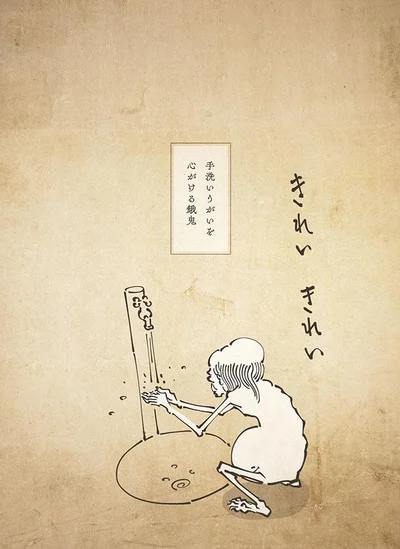 手洗いうがいを
心がける餓鬼
きれい
きれい